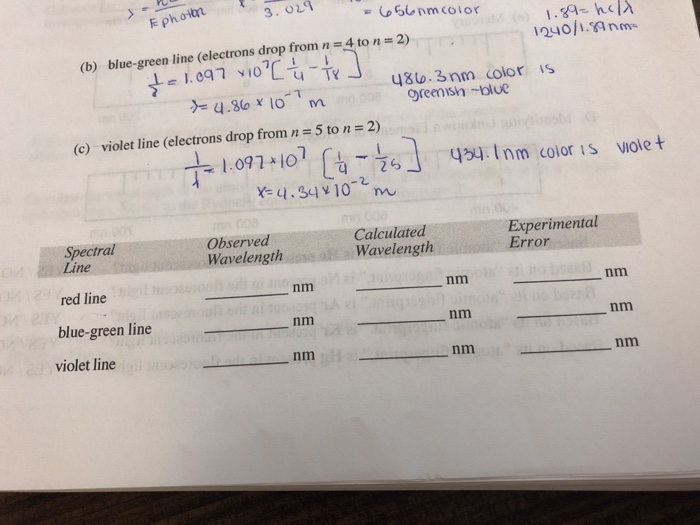 E photon
3.029
= 656nm color
1.89 = hc/λ
1240/1.89nm=
(b) blue-green line (electrons drop from n = 4 to n = 2)
1/λ = 1.097 x10⁷ [ 1/4 - 1/18 ]
486.3nm color is
greenish-blue
λ= 4.86 x 10⁻⁷ m
(c) violet line (electrons drop from n = 5 to n = 2)
1/λ = 1.097x10⁷ [ 1/4 - 1/25 ] 434.1nm color is violet
λ= 4.34x10⁻² m
Spectral Line Observed Wavelength Calculated Wavelength Experimental Error
red line ____ nm ____ nm ____ nm
blue-green line ____ nm ____ nm ____ nm
violet line ____ nm ____ nm ____ nm